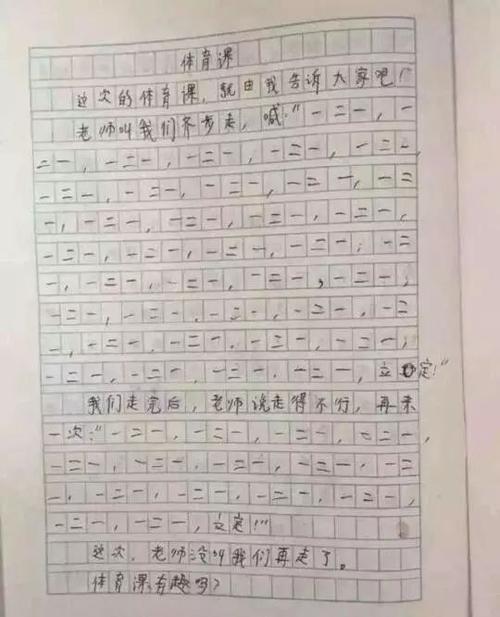 体育课
这次的体育课，就由我告诉大家吧！
老师叫我们齐步走，喊："一二一，一
二一，一二一，一二一，一二一，一二一，
一二一，一二一，一二一，一二一，一二
一，一二一，一二一，一二一，一二一，
一二一，一二一，一二一，一二一，一二
一，一二一，一二一，一二一，一二一，
一二一，一二一，一二一，一二一，一二
一，一二一，一二一，一二一，一二一，
一二一，一二一，一二一，一二一，立定！"
我们走完后，老师说走得不行，再来
一次："一二一，一二一，一二一，一二一，
一二一，一二一，一二一，一二一，一二
一，一二一，一二一，一二一，一二一，
一二一，一二一，立定！"
这次，老师没叫我们再走了。
体育课有趣吗？